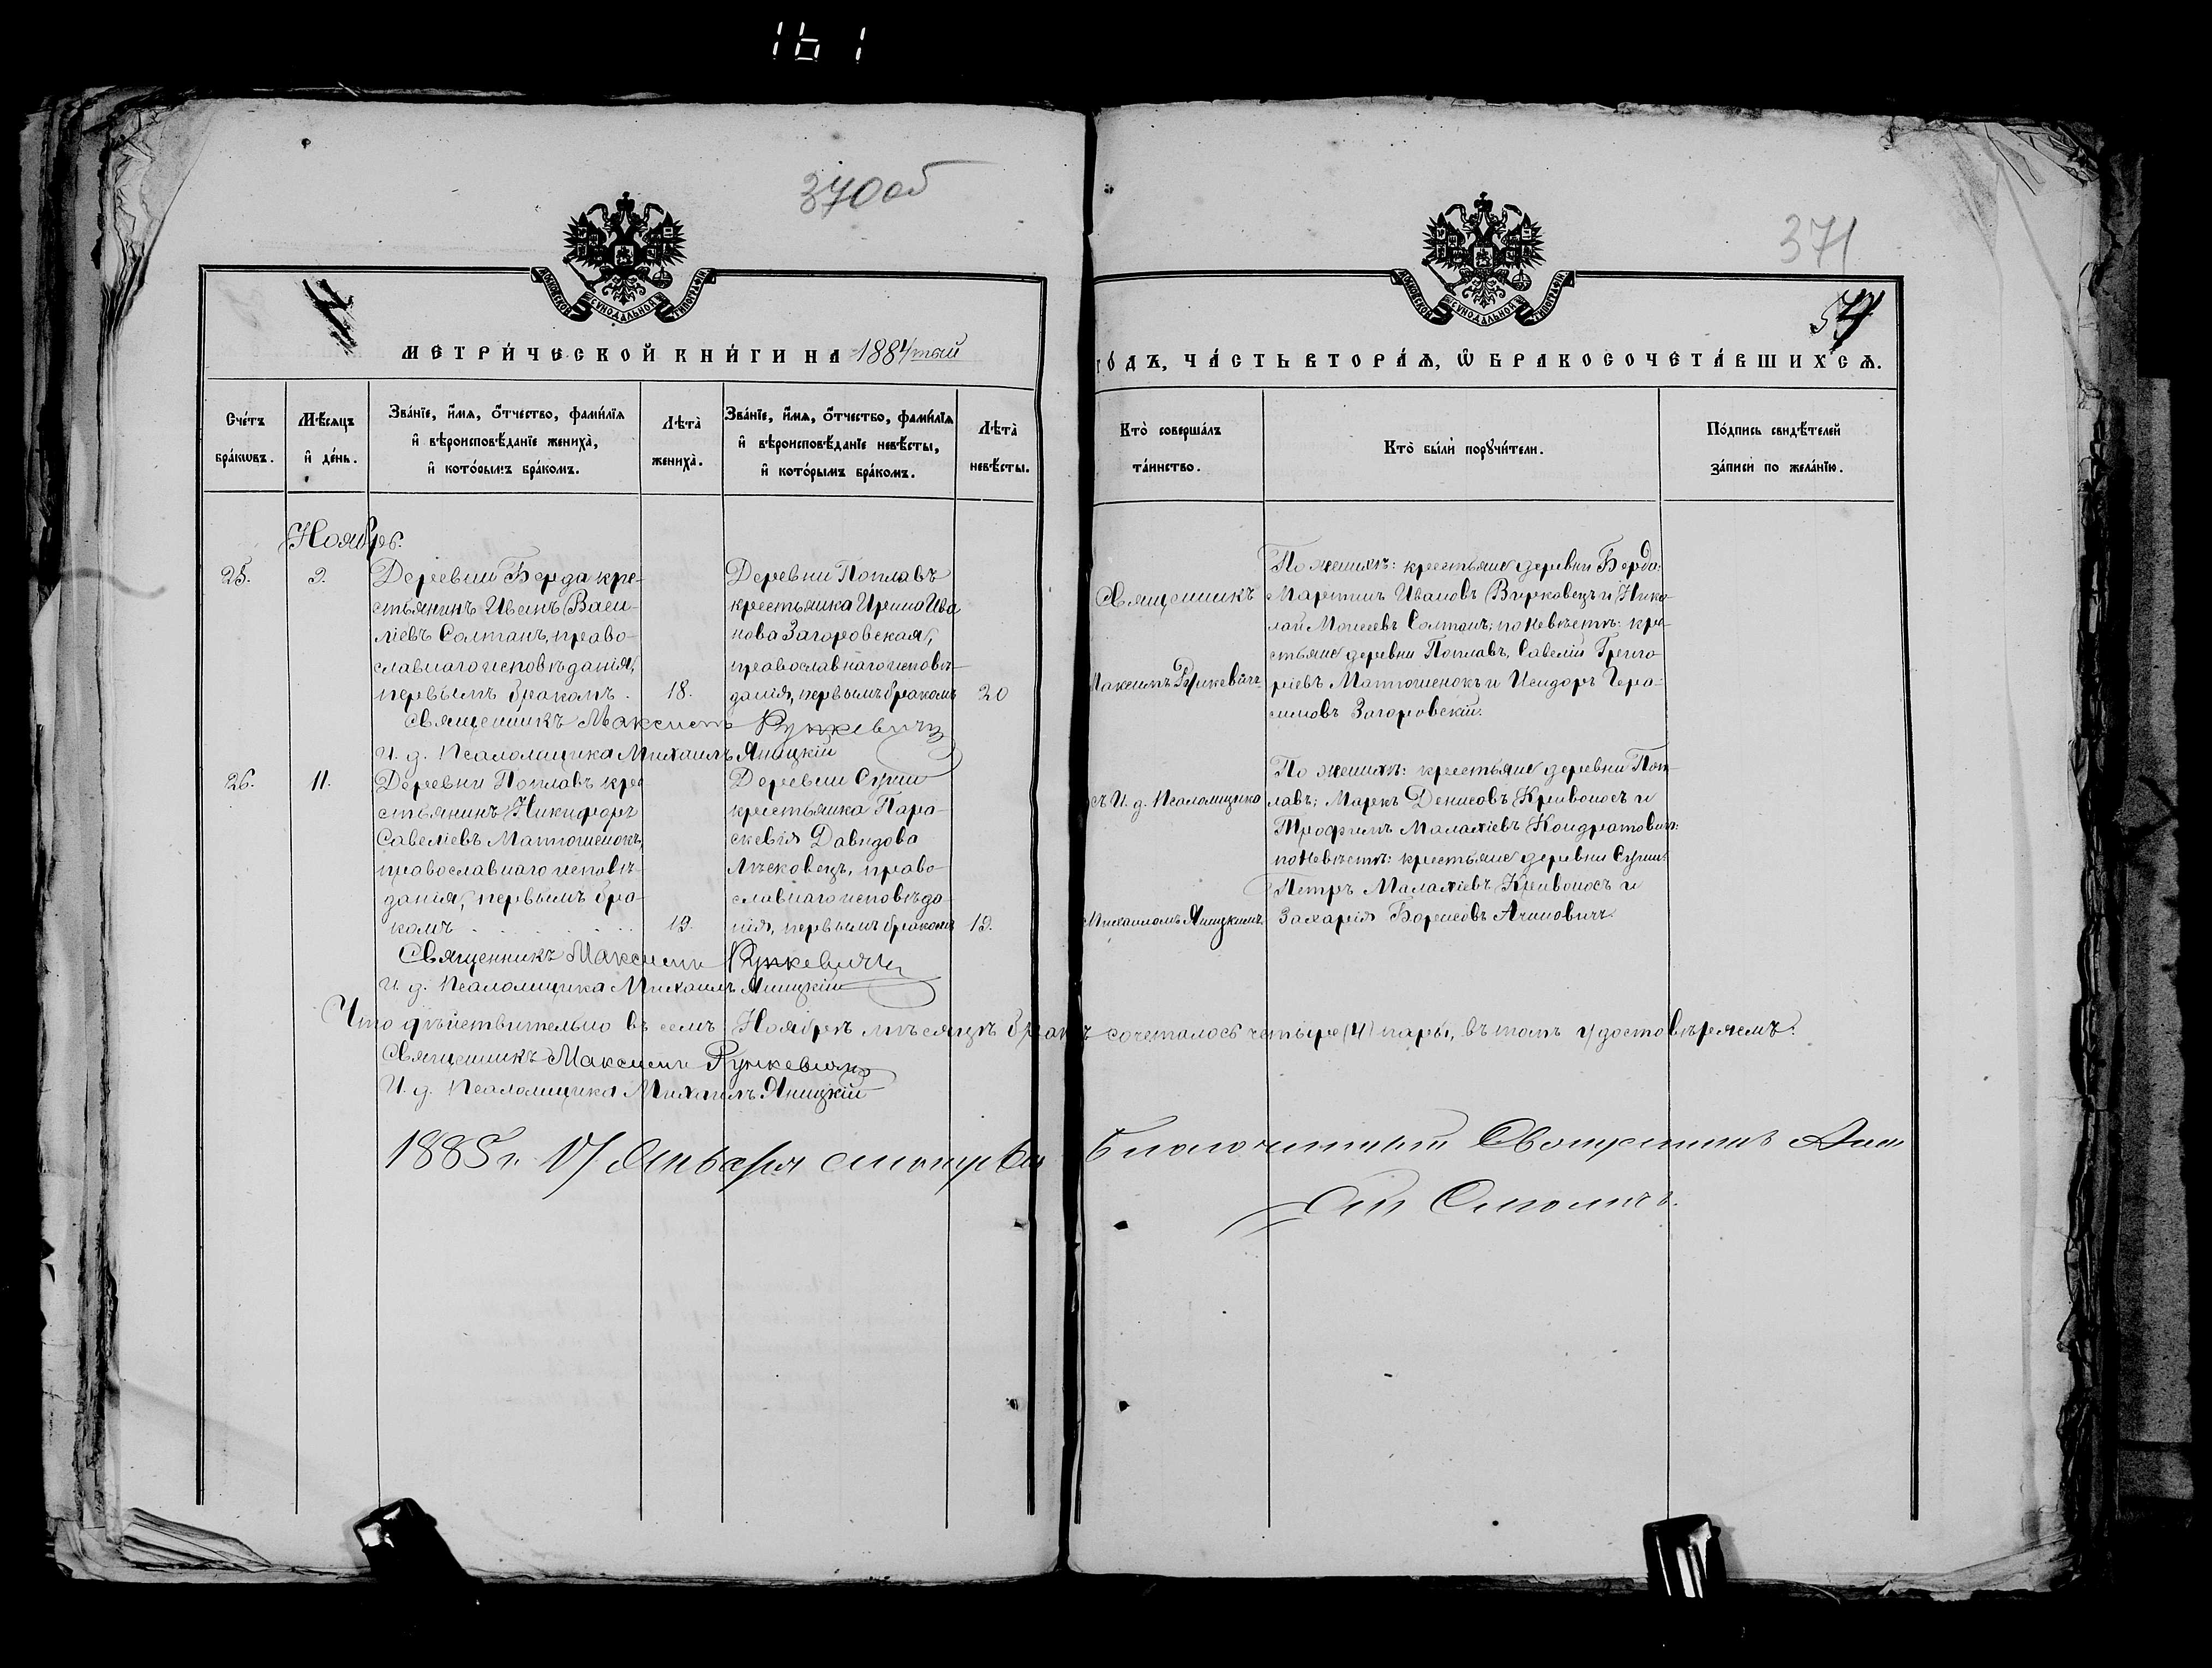 161
370 об
371
МОСКОВСКОЙ СѴНОДАЛЬНОЙ ТИПОГРАФІИ
МОСКОВСКОЙ СѴНОДАЛЬНОЙ ТИПОГРАФІИ
МЕТРИ́ЧЕСКОЙ КНИ́ГИ НА 1884тый
ГО́ДЪ, ЧА́СТЬ ВТОРА́Ѧ, Ѽ БРАКОСОЧЕТА́ВШИХСѦ.
Сче́тъ бра́кѡвъ.
Мѣ́сѧцъ и҆ де́нь.
Зва́нїе, и҆́мѧ, ѻ҆́тчество, фами́лїѧ
и҆ вѣроисповѣ́данїе жениха̀,
и҆ кото́рымъ бра́комъ.
Лѣ́та̀ жениха̀.
Зва́нїе, и҆́мѧ, ѻ҆́тчество, фами́лїѧ
и҆ вѣроисповѣ́данїе невѣ́сты,
и҆ кото́рымъ бра́комъ.
Лѣ́та̀ невѣ́сты.
Кто̀ соверша́лъ та́инство.
Кто̀ бы́ли порꙋчи́тели.
По́дпись свидѣ́телей за́писи по жела́нїю.
Ноябрь.
25.
9.
Деревни Берда кре-
стьянинъ Иванъ Васи-
ліевъ Солтанъ, право-
славнаго исповѣданія,
первымъ бракомъ.
18.
Деревни Поплавъ
крестьянка Ирина Ива
нова Загоровская,
православнаго исповѣ-
данія, первымъ бракомъ
20
Священникъ
Максимъ Рункевичъ
По женихѣ: крестьяне деревни Берда:
Мартинъ Ивановъ Вирковецъ и Нико-
лай Моисеевъ Солтанъ; по невѣстѣ: кре-
стьяне деревни Поплавъ, Савелій Григо-
ріевъ Матюшенокъ и Исидоръ Гера-
симовъ Загоровскій.
Священникъ Максимъ Рункевичъ
И. д. Псаломщика Михаилъ Яницкій
26.
11.
Деревни Поплавъ кре
стьянинъ Никифоръ
Савеліевъ Матюшенокъ,
православнаго исповѣ-
данія, первымъ бра-
комъ
19.
Деревни Сущи
крестьянка Пара-
скевія Давидова
Лѣсковецъ, право-
славнаго исповѣда-
нія, первымъ бракомъ
19.
съ И. д. Псаломщика
Михаиломъ Яницкимъ.
По женихѣ: крестьяне деревни Поп-
лавъ; Маркъ Денисовъ Кривоносъ и
Трофимъ Малахіевъ Кондратовичъ:
по невѣстѣ: крестьяне деревни Сущи:
Петръ Малахіевъ Кривоносъ и
Захарія Борисовъ Ачиновичъ.
Священникъ Максимъ Рункевичъ
И. д. Псаломщика Михаилъ Яницкій
Что дѣйствительно въ семъ Ноябрѣ мѣсяцѣ бракъ сочеталось четыре (4) пары, въ томъ удостовѣряемъ:
Священникъ Максимъ Рункевичъ
И. д. Псаломщика Михаилъ Яницкій
1885 г. 17 Января смотрѣлъ Благочинный Священникъ